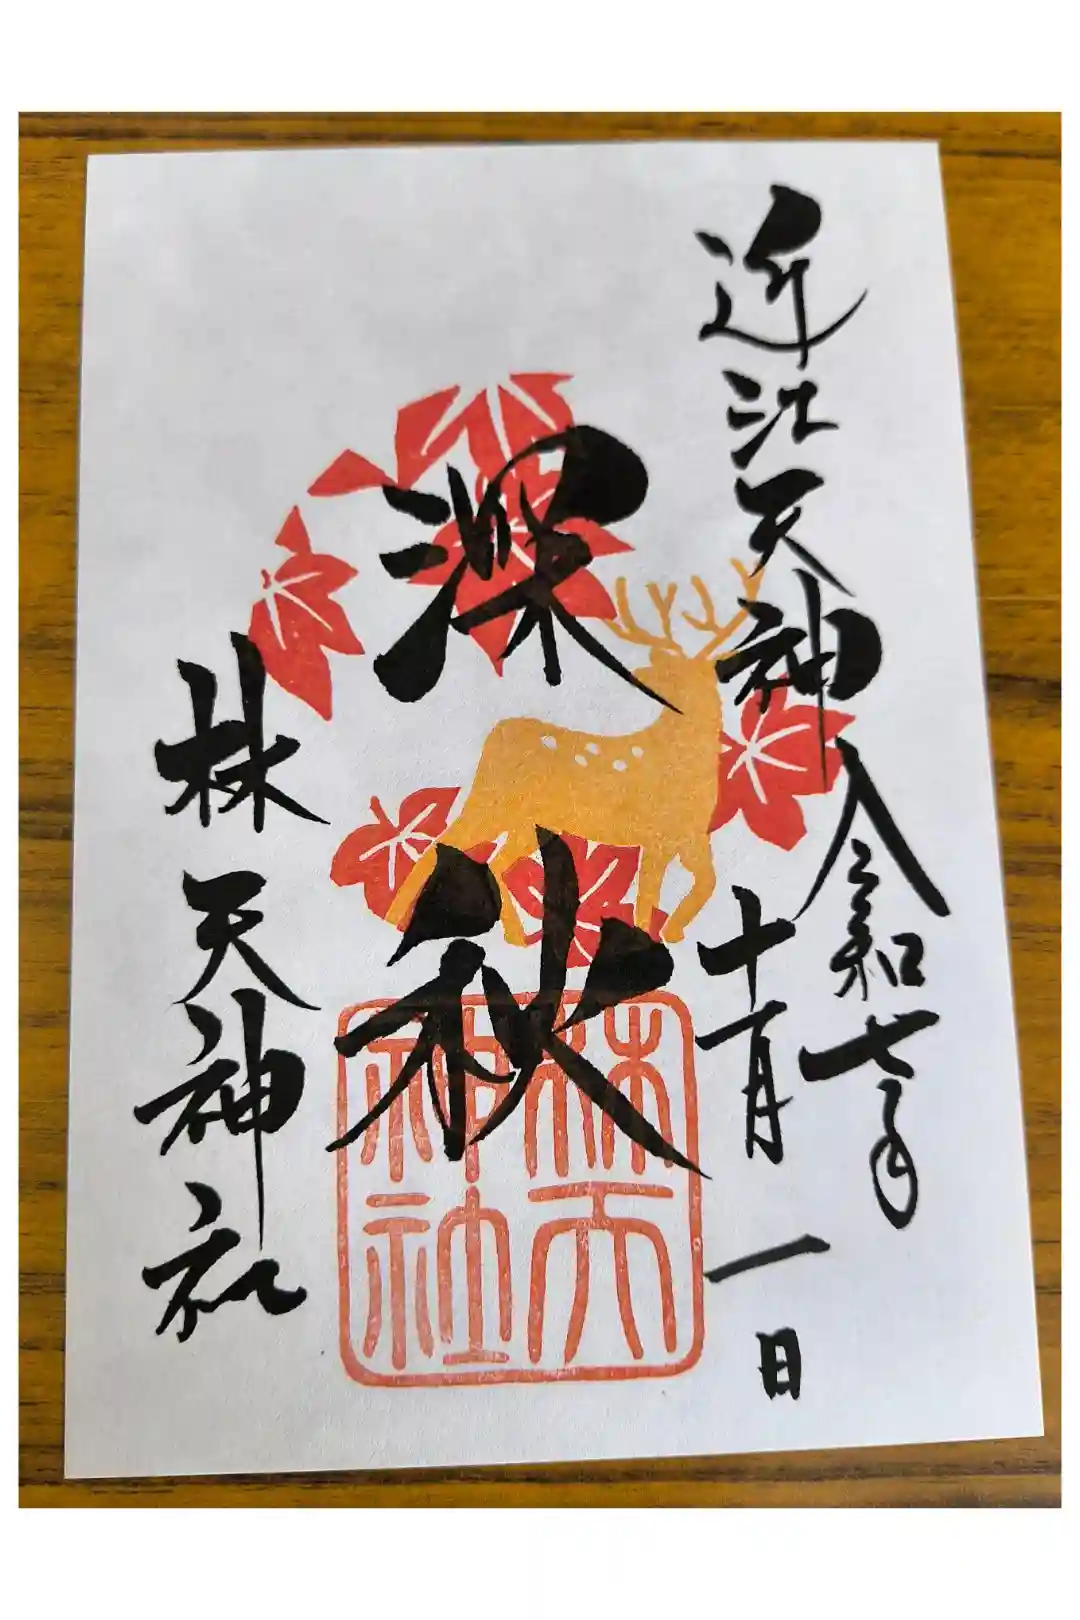 近江天神
令和七年
十一月
一日
深秋
林天神社
林天
神社